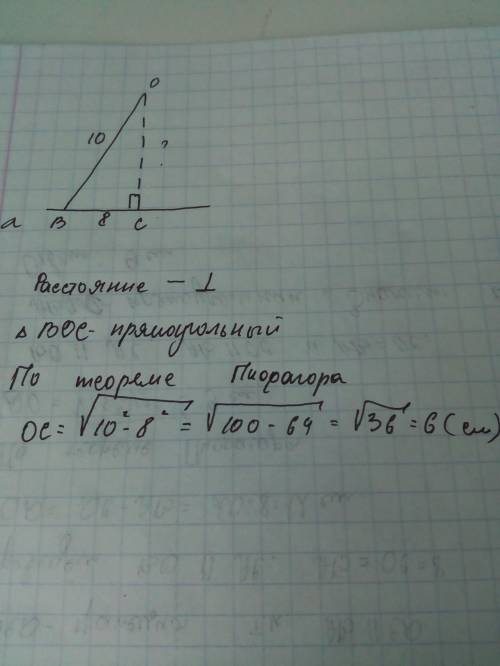 O
10
?
a B 8 C
Расстояние — ⊥
△ BOC - прямоугольный
По теореме Пифагора
OC = √10² - 8² = √100 - 64 = √36 = 6 (см)